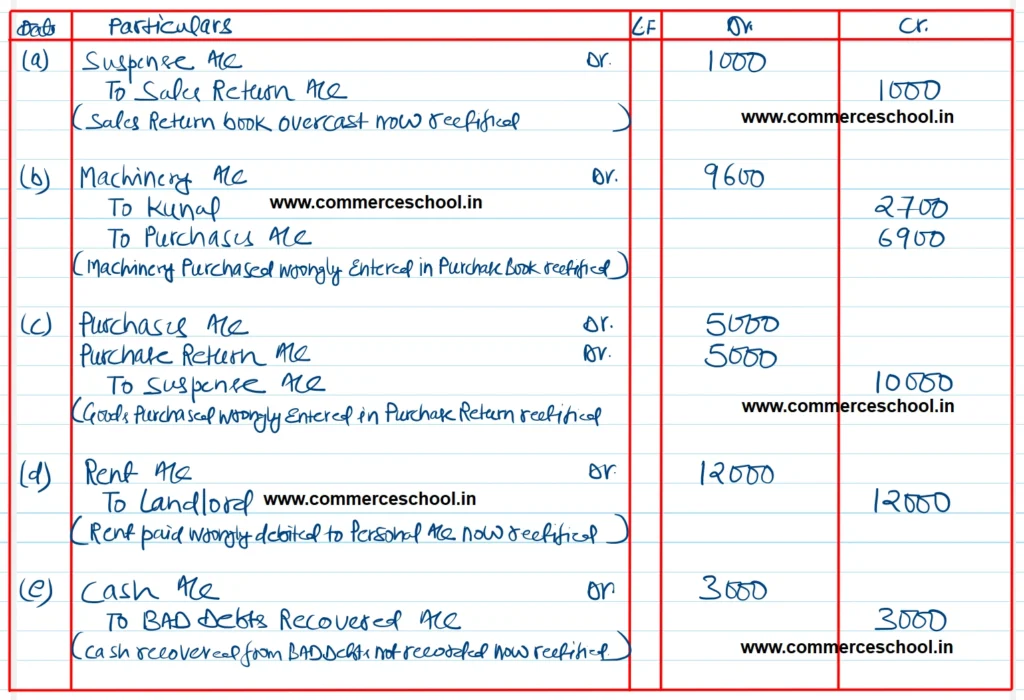 Date Particulars L.F Dr. Cr.
(a) Suspense A/c Dr. 1000
To Sales Return A/c 1000
(Sales Return book overcast now rectified) www.commerceschool.in
(b) Machinery A/c Dr. 9600
To Kunal www.commerceschool.in 2700
To Purchases A/c 6900
(Machinery Purchased wrongly Entered in Purchase Book rectified)
(c) Purchases A/c Dr. 5000
Purchase Return A/c Dr. 5000
To Suspense A/c 10000
(Goods Purchased wrongly Entered in Purchase Return rectified www.commerceschool.in
(d) Rent A/c Dr. 12000
To Landlord www.commerceschool.in 12000
(Rent paid wrongly debited to Personal A/c now rectified)
(e) Cash A/c Dr 3000
To BAD Debts Recovered A/c 3000
(cash recovered from BAD Debts not recorded now rectified.) www.commerceschool.in